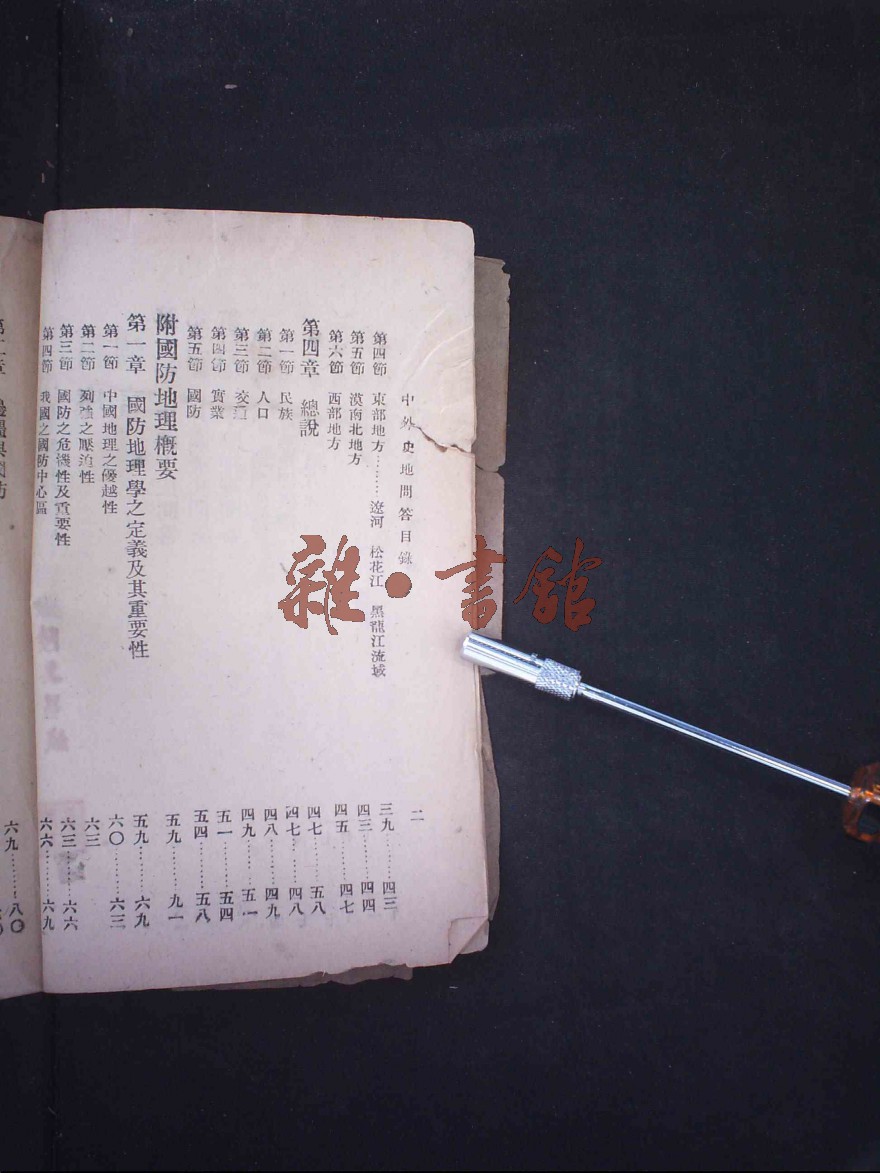 中外史地問答目錄 二
第四節 東部地方………遼河 松花江 黑龍江流域 三九………四三
第五節 漠南北地方 四三………四四
第六節 西部地方 四五………四七
第四章 總說 四七………五八
第一節 民族 四七………四八
第二節 人口 四八………四九
第三節 交通 四九………五一
第四節 實業 五一………五四
第五節 國防 五四………五八
附國防地理概要 五九………九一
第一章 國防地理學之定義及其重要性 五九………六九
第一節 中國地理之優越性 六〇………六三
第二節 列強之壓迫性 六三
第三節 國防之危機性及重要性 六三………六六
第四節 我國之國防中心區 六六………六九
六九………八〇
雜·書館